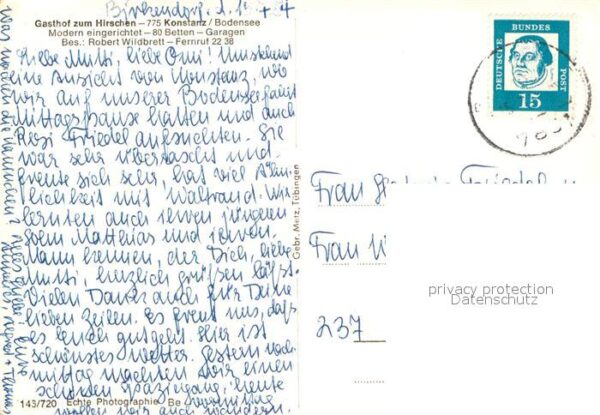 Birkendorf,
Gasthof zum Hirschen – 775 Konstanz / Bodensee
Modern eingerichtet – 80 Betten – Garagen
Bes.: Robert Wildbrett – Fernruf 22 38
Liebe Mutti, liebe Omi! Umstehend
eine Ansicht von Konstanz, wo
wir auf unserer Bodenseefahrt
Mittagspause hatten und auch
Rosi Friedel aufsuchten. Sie
war sehr überrascht und
freute sich sehr, hat viel Ähn-
lichkeit mit Waltraud. Wir
lernten auch ihren jüngeren
Sohn Matthias und ihren
Mann kennen, der Dich, liebe
Mutti, herzlich grüßen läßt.
Vielen Dank auch für Deine
lieben Zeilen. Es freut uns, daß
es Euch gut geht. Hier ist
schönstes Wetter. Gestern nach-
mittag machten wir einen
schönen Spaziergang, heute
wollen wir auch wandern.
was machen die
143/720 Echte Photographie Be
Gebr. Metz, Tübingen
DEUTSCHE BUNDES POST
15
Frau
Frau
237
privacy protection
Datenschutz